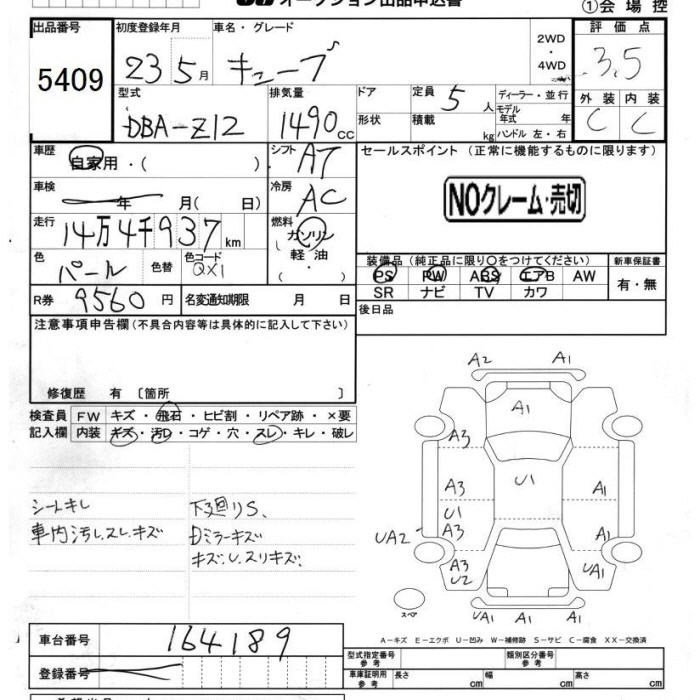 オークション出品申込書
①会場控
出品番号 初度登録年月 車名・グレード 2WD 評価点
5409 23 5月 キューブ 4WD 3.5
型式 排気量 ドア 定員 5人 ディーラー・並行 外装 内装
DBA-Z12 1490cc 形状 積載 kg モデル年式 年 ハンドル 左・右 C C
車歴 自家用・( ) シフト AT セールスポイント (正常に機能するものに限ります)
車検 年 月( 日) 冷房 AC NOクレーム・売切
走行 14万4千937km 燃料 ガソリン
軽油
・
( )
色 パール 色替 色コード QX1 装備品(純正品に限り○をつけてください) 新車保証書
PS PW ABS エアB AW 有・無
R券 9560円 名変通知期限 月 日 SR ナビ TV カワ
注意事項申告欄(不具合内容等は具体的に記入して下さい) 後日品
修復歴 有 〔箇所 〕
検査員 FW キズ・飛石・ヒビ割・リペア跡・×要
記入欄 内装 キズ・汚レ・コゲ・穴・スレ・キレ・破レ
シートキレ 下廻りS、
車内汚レ、スレ、キズ Dミラーキズ
キズ、U、スリキズ、
A2 A1
A1
A3
A3 U1 A1
U1
UA2 A3 A1
A3 UA1
U2
スペア UA1 A1
A−キズ E−エクボ U−凹み W−補修跡 S−サビ C−腐食 XX−交換済
車台番号 164189
型式指定番号 参考 類別区分番号 参考
登録番号
車庫証明用 参考 長さ cm 幅 cm 高さ cm